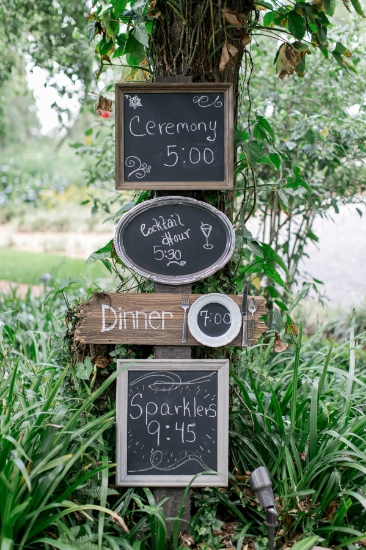 Ceremony
5:00
Cocktail
Hour
5:30
Dinner 7:00
Sparklers
9:45